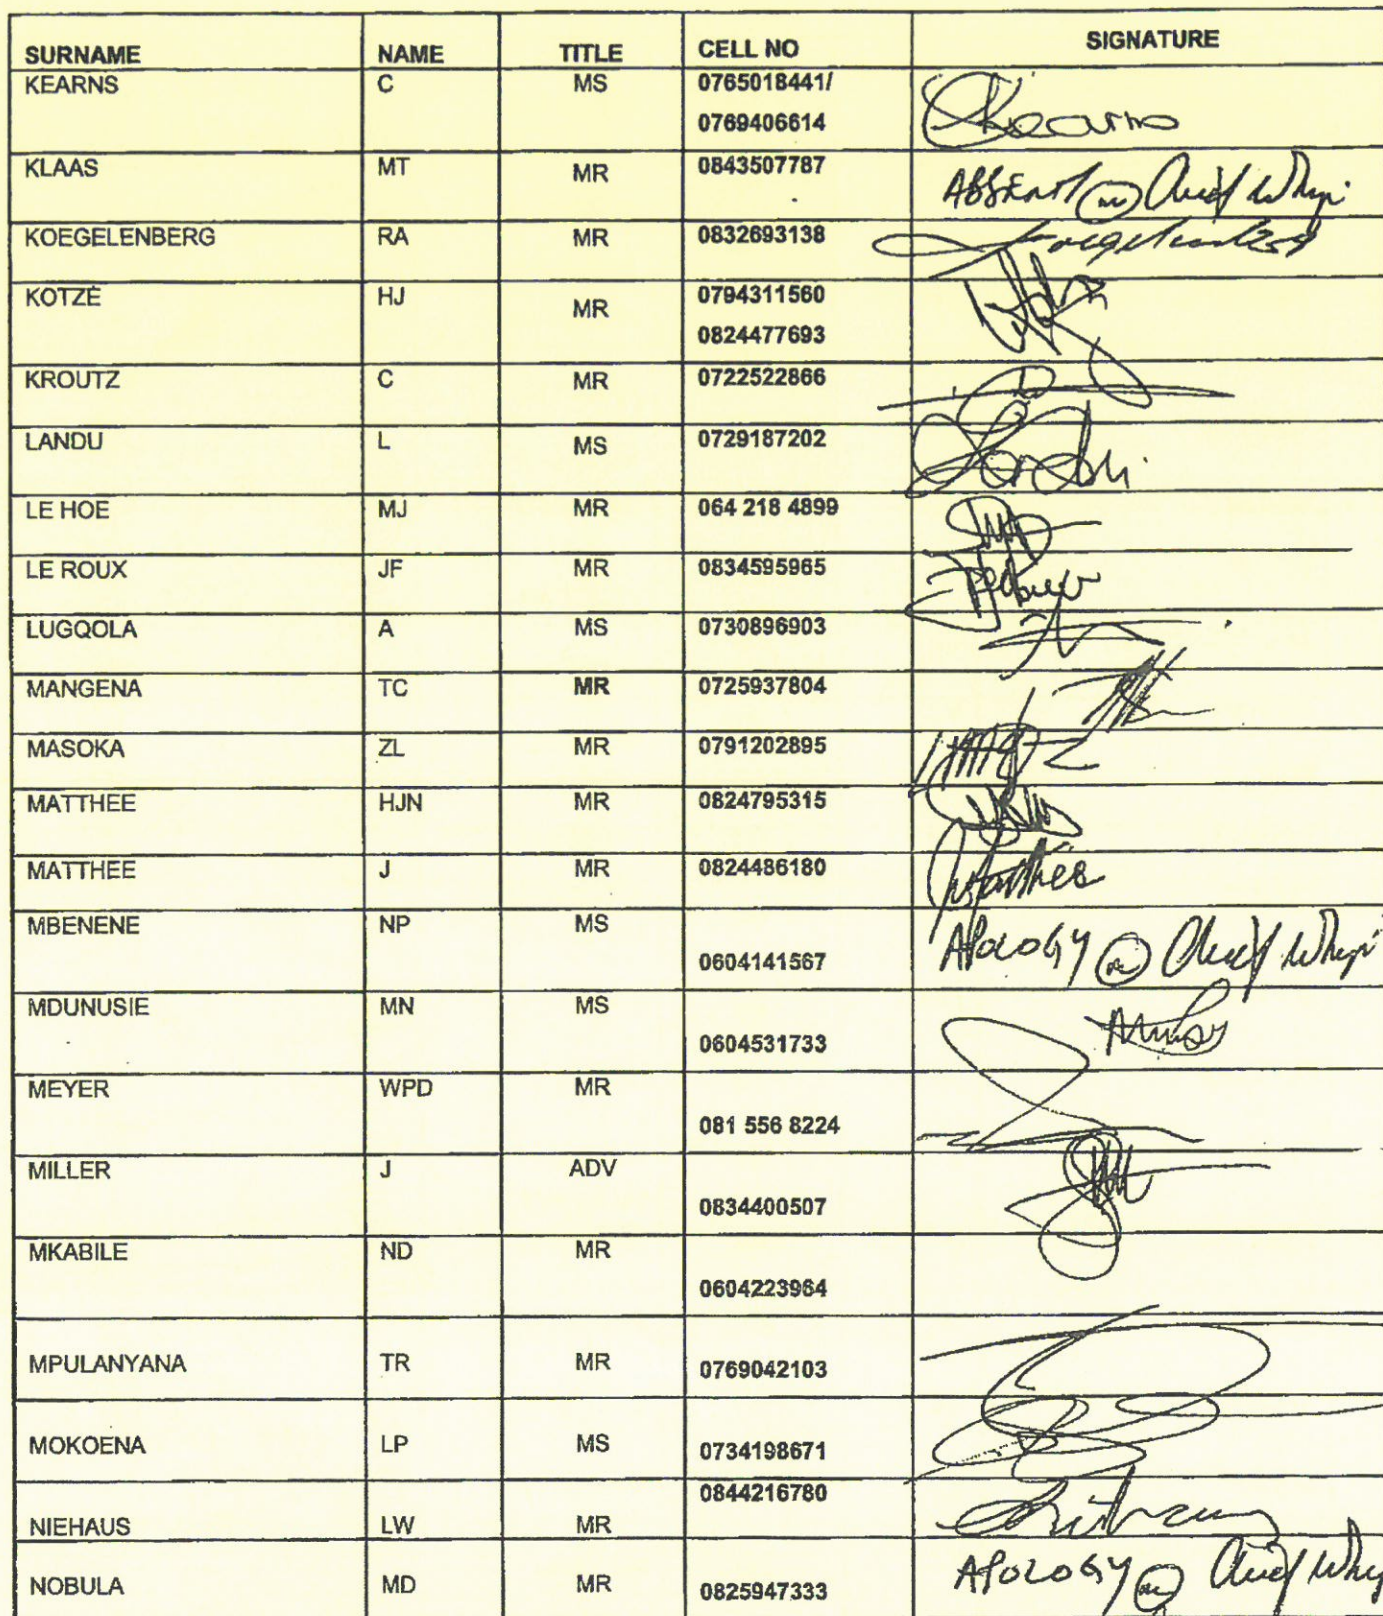 SURNAME NAME TITLE CELL NO SIGNATURE
KEARNS C MS 0765018441/
0769406614 Kearns
KLAAS MT MR 0843507787 ABSENT Chief Whip
KOEGELENBERG RA MR 0832693138
KOTZE HJ MR 0794311560
0824477693
KROUTZ C MR 0722522866
LANDU L MS 0729187202
LE HOE MJ MR 064 218 4899
LE ROUX JF MR 0834595965
LUGQOLA A MS 0730896903
MANGENA TC MR 0725937804
MASOKA ZL MR 0791202895
MATTHEE HJN MR 0824795315
MATTHEE J MR 0824486180 Matthee
MBENENE NP MS
0604141567 APOLOGY Chief Whip
MDUNUSIE MN MS
0604531733
MEYER WPD MR
081 556 8224
MILLER J ADV
0834400507
MKABILE ND MR
0604223964
MPULANYANA TR MR 0769042103
MOKOENA LP MS 0734198671
0844216780
NIEHAUS LW MR
NOBULA MD MR 0825947333 APOLOGY Chief Whip